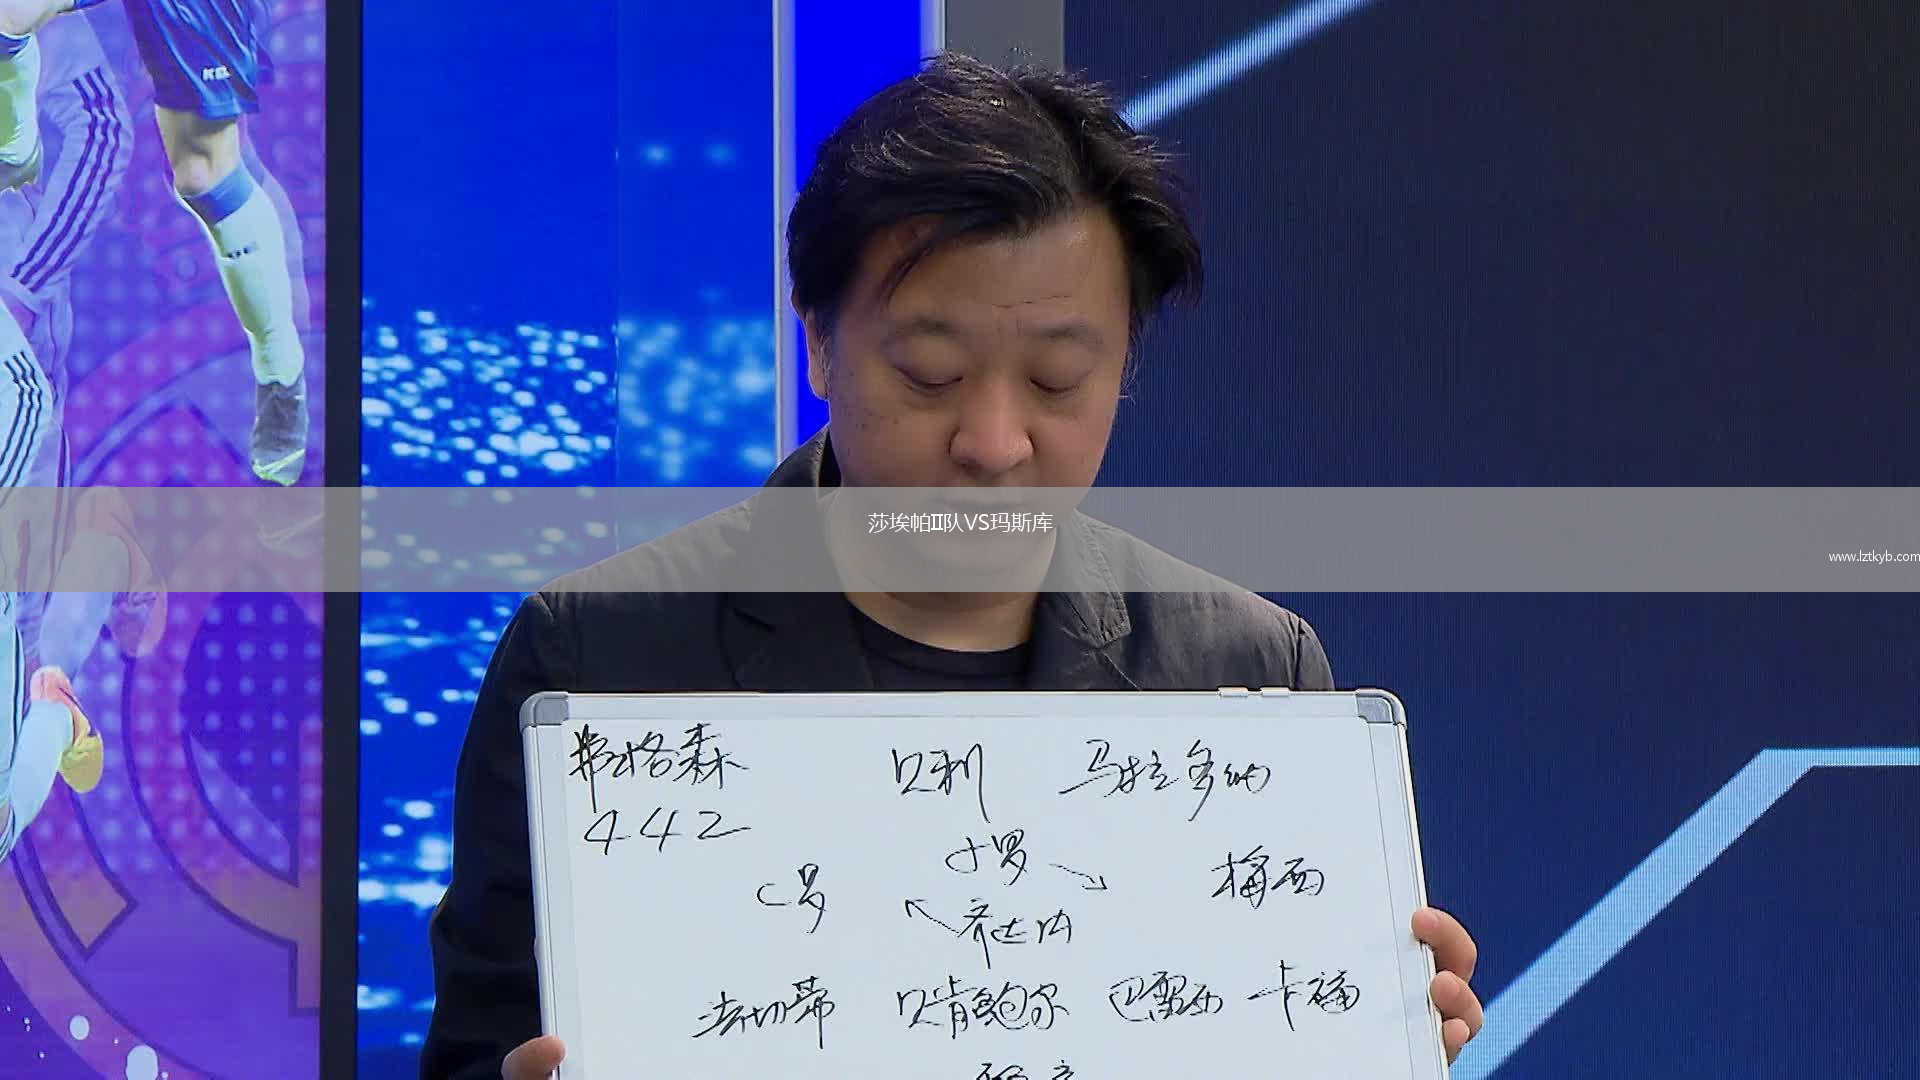 KEL
莎埃帕II队VS玛斯库
www.lztkyb.com
弗格森 贝利 马拉多纳
442
小罗
C罗 梅西
齐达内
法切蒂 贝肯鲍尔 巴雷西 卡福